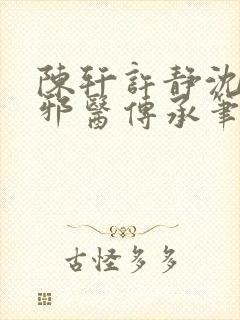 陳轩許静沈
邪醫傳承筆
古怪多多